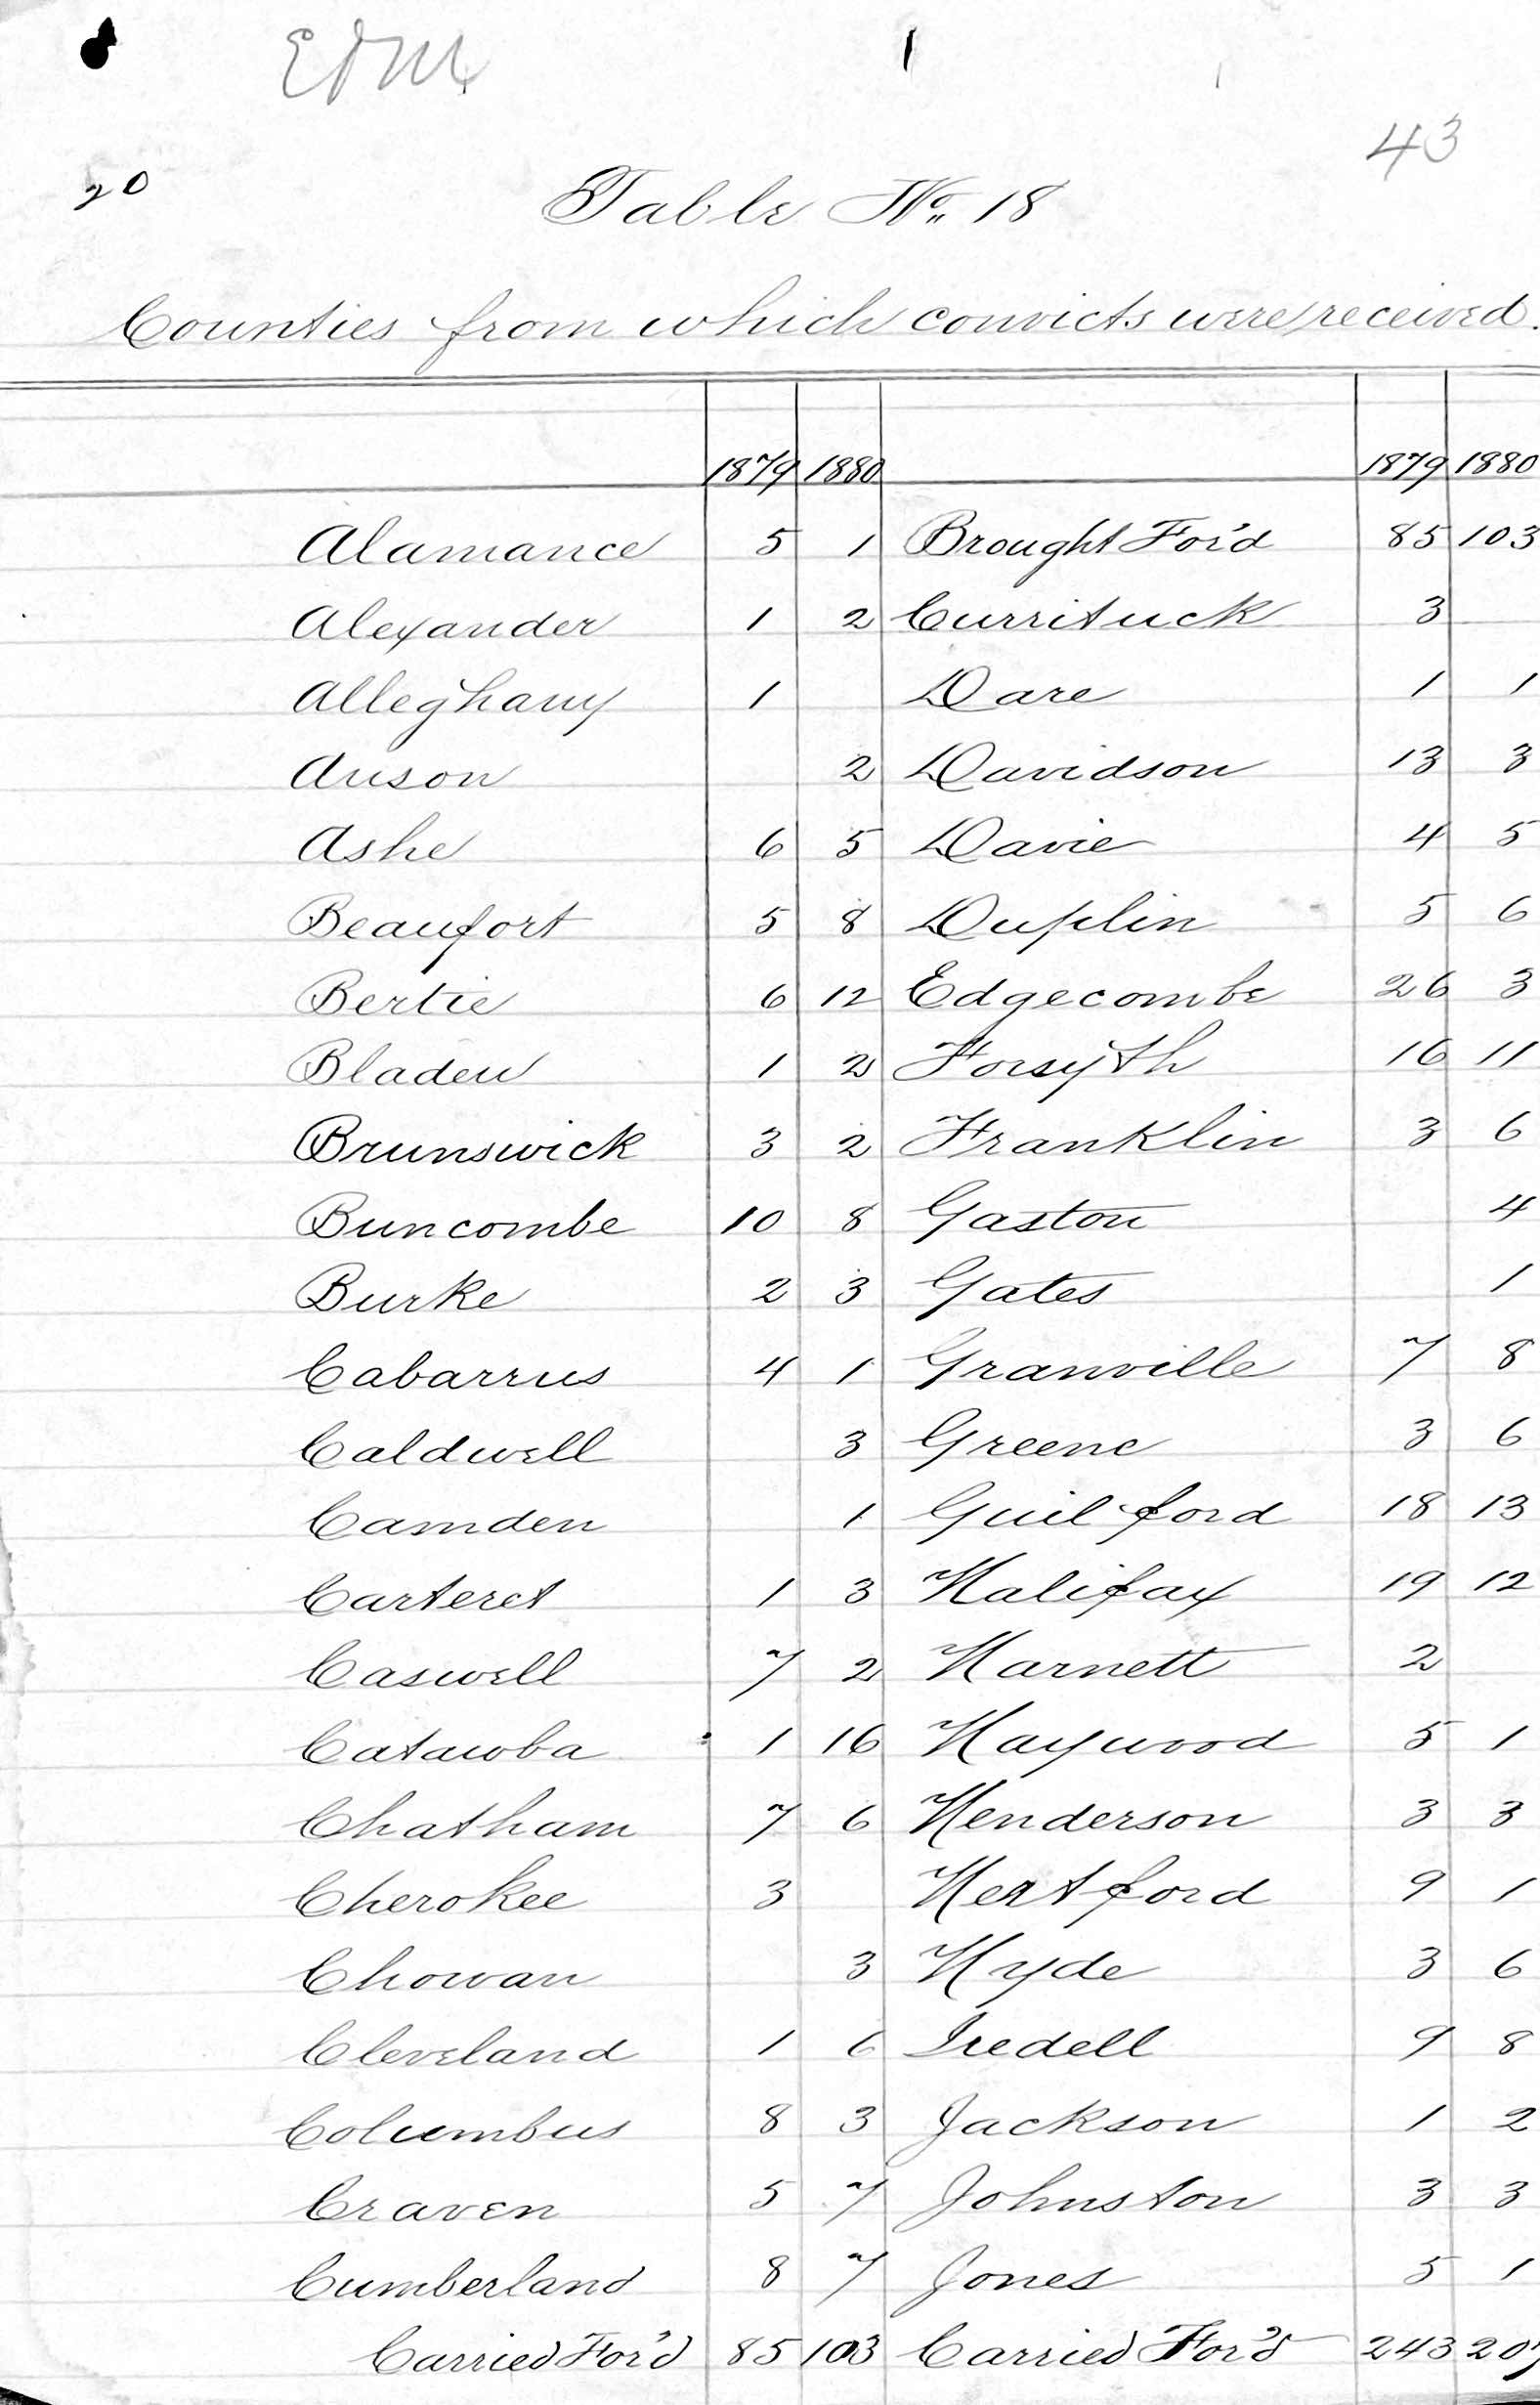 EDM 1
43
20
Table No. 18
Counties from which convicts were received.
1879 1880 1879 1880
Alamance 5 1 Brought For'd 85 103
Alexander 1 2 Currituck 3
Alleghany 1 Dare 1 1
Anson 2 Davidson 13 3
Ashe 6 5 Davie 4 5
Beaufort 5 8 Duplin 5 6
Bertie 6 12 Edgecombe 26 3
Bladen 1 2 Forsyth 16 11
Brunswick 3 2 Franklin 3 6
Buncombe 10 8 Gaston 4
Burke 2 3 Gates 1
Cabarrus 4 1 Granville 7 8
Caldwell 3 Greene 3 6
Camden 1 Guilford 18 13
Carteret 1 3 Halifax 19 12
Caswell 7 2 Harnett 2
Catawba 1 16 Haywood 5 1
Chatham 7 6 Henderson 3 3
Cherokee 3 Hertford 9 1
Chowan 3 Hyde 3 6
Cleveland 1 6 Iredell 9 8
Columbus 8 3 Jackson 1 2
Craven 5 7 Johnston 3 3
Cumberland 8 7 Jones 5 1
Carried For'd 85 103 Carried For'd 243 207